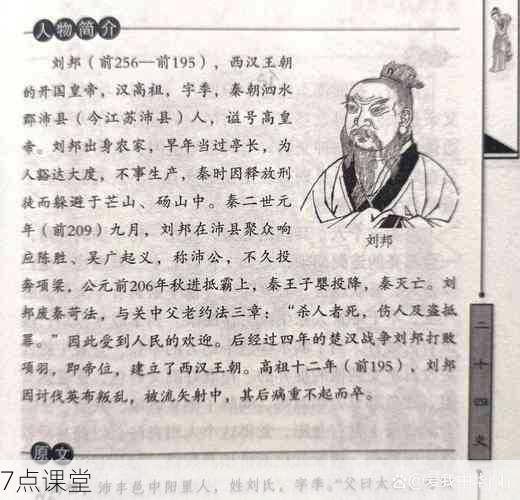 人物简介
刘邦（前256—前195），西汉王朝
的开国皇帝，汉高祖，字季，秦朝泗水
郡沛县（今江苏沛县）人，谥号高皇
帝。刘邦出身农家，早年当过亭长，为
人豁达大度，不事生产，秦时因释放刑
徒而躲避于芒山、砀山中。秦二世元
年（前209）九月，刘邦在沛县聚众响
应陈胜、吴广起义，称沛公，不久投
奔项梁，公元前206年秋进抵霸上，秦王子婴投降，秦灭亡。刘
邦废秦苛法，与关中父老约法三章：“杀人者死，伤人及盗抵
罪。”因此受到人民的欢迎。后经过四年的楚汉战争刘邦打败
项羽，即帝位，建立了西汉王朝。高祖十二年（前195），刘邦
因讨伐英布叛乱，被流矢射中，其后病重不起而卒。
刘邦
二十四史
原文
沛丰邑中阳里人，姓刘氏，字季。父曰太
7点课堂